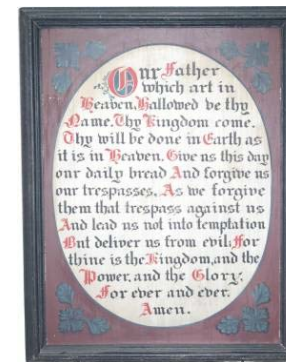 Our Father
which art in
Heaven, Hallowed be thy
Name. Thy Kingdom come.
Thy will be done in Earth as
it is in Heaven. Give us this day
our daily bread And forgive us
our trespasses, As we forgive
them that trespass against us
And lead us not into temptation
But deliver us from evil; For
thine is the Kingdom, and the
Power, and the Glory;
For ever and ever.
Amen.